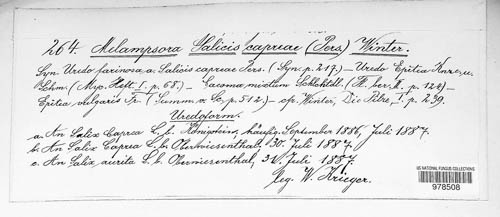 264. Melampsora Salicis capreae (Pers.) Winter.
Syn. Uredo farinosa α. Salicis capreae Pers. (Syn. p. 217.) — Uredo Epitea Kunze u.
Schm. (Myc. Heft. I. p. 68.) — Caeoma mixtum Schlchtdl. (Fl. ber. II. p. 124) —
Epitea vulgaris Fr. (Summ. v. Sc. p. 512.) — cfr. Winter, Die Pilze, I. p. 239.
Uredoform.
a. An Salix Caprea L., b. Königstein, häufig. September 1886, Juli 1887.
b. An Salix Caprea L. b. Oberwiesenthal, 30. Juli 1887.
c. An Salix aurita L. b. Oberwiesenthal, Juli 1887.
leg. W. Krieger.
US NATIONAL FUNGUS COLLECTIONS
978508